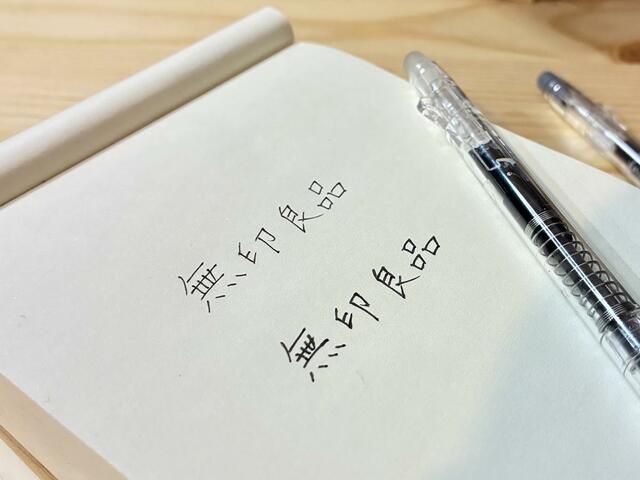 無印良品
無印良品